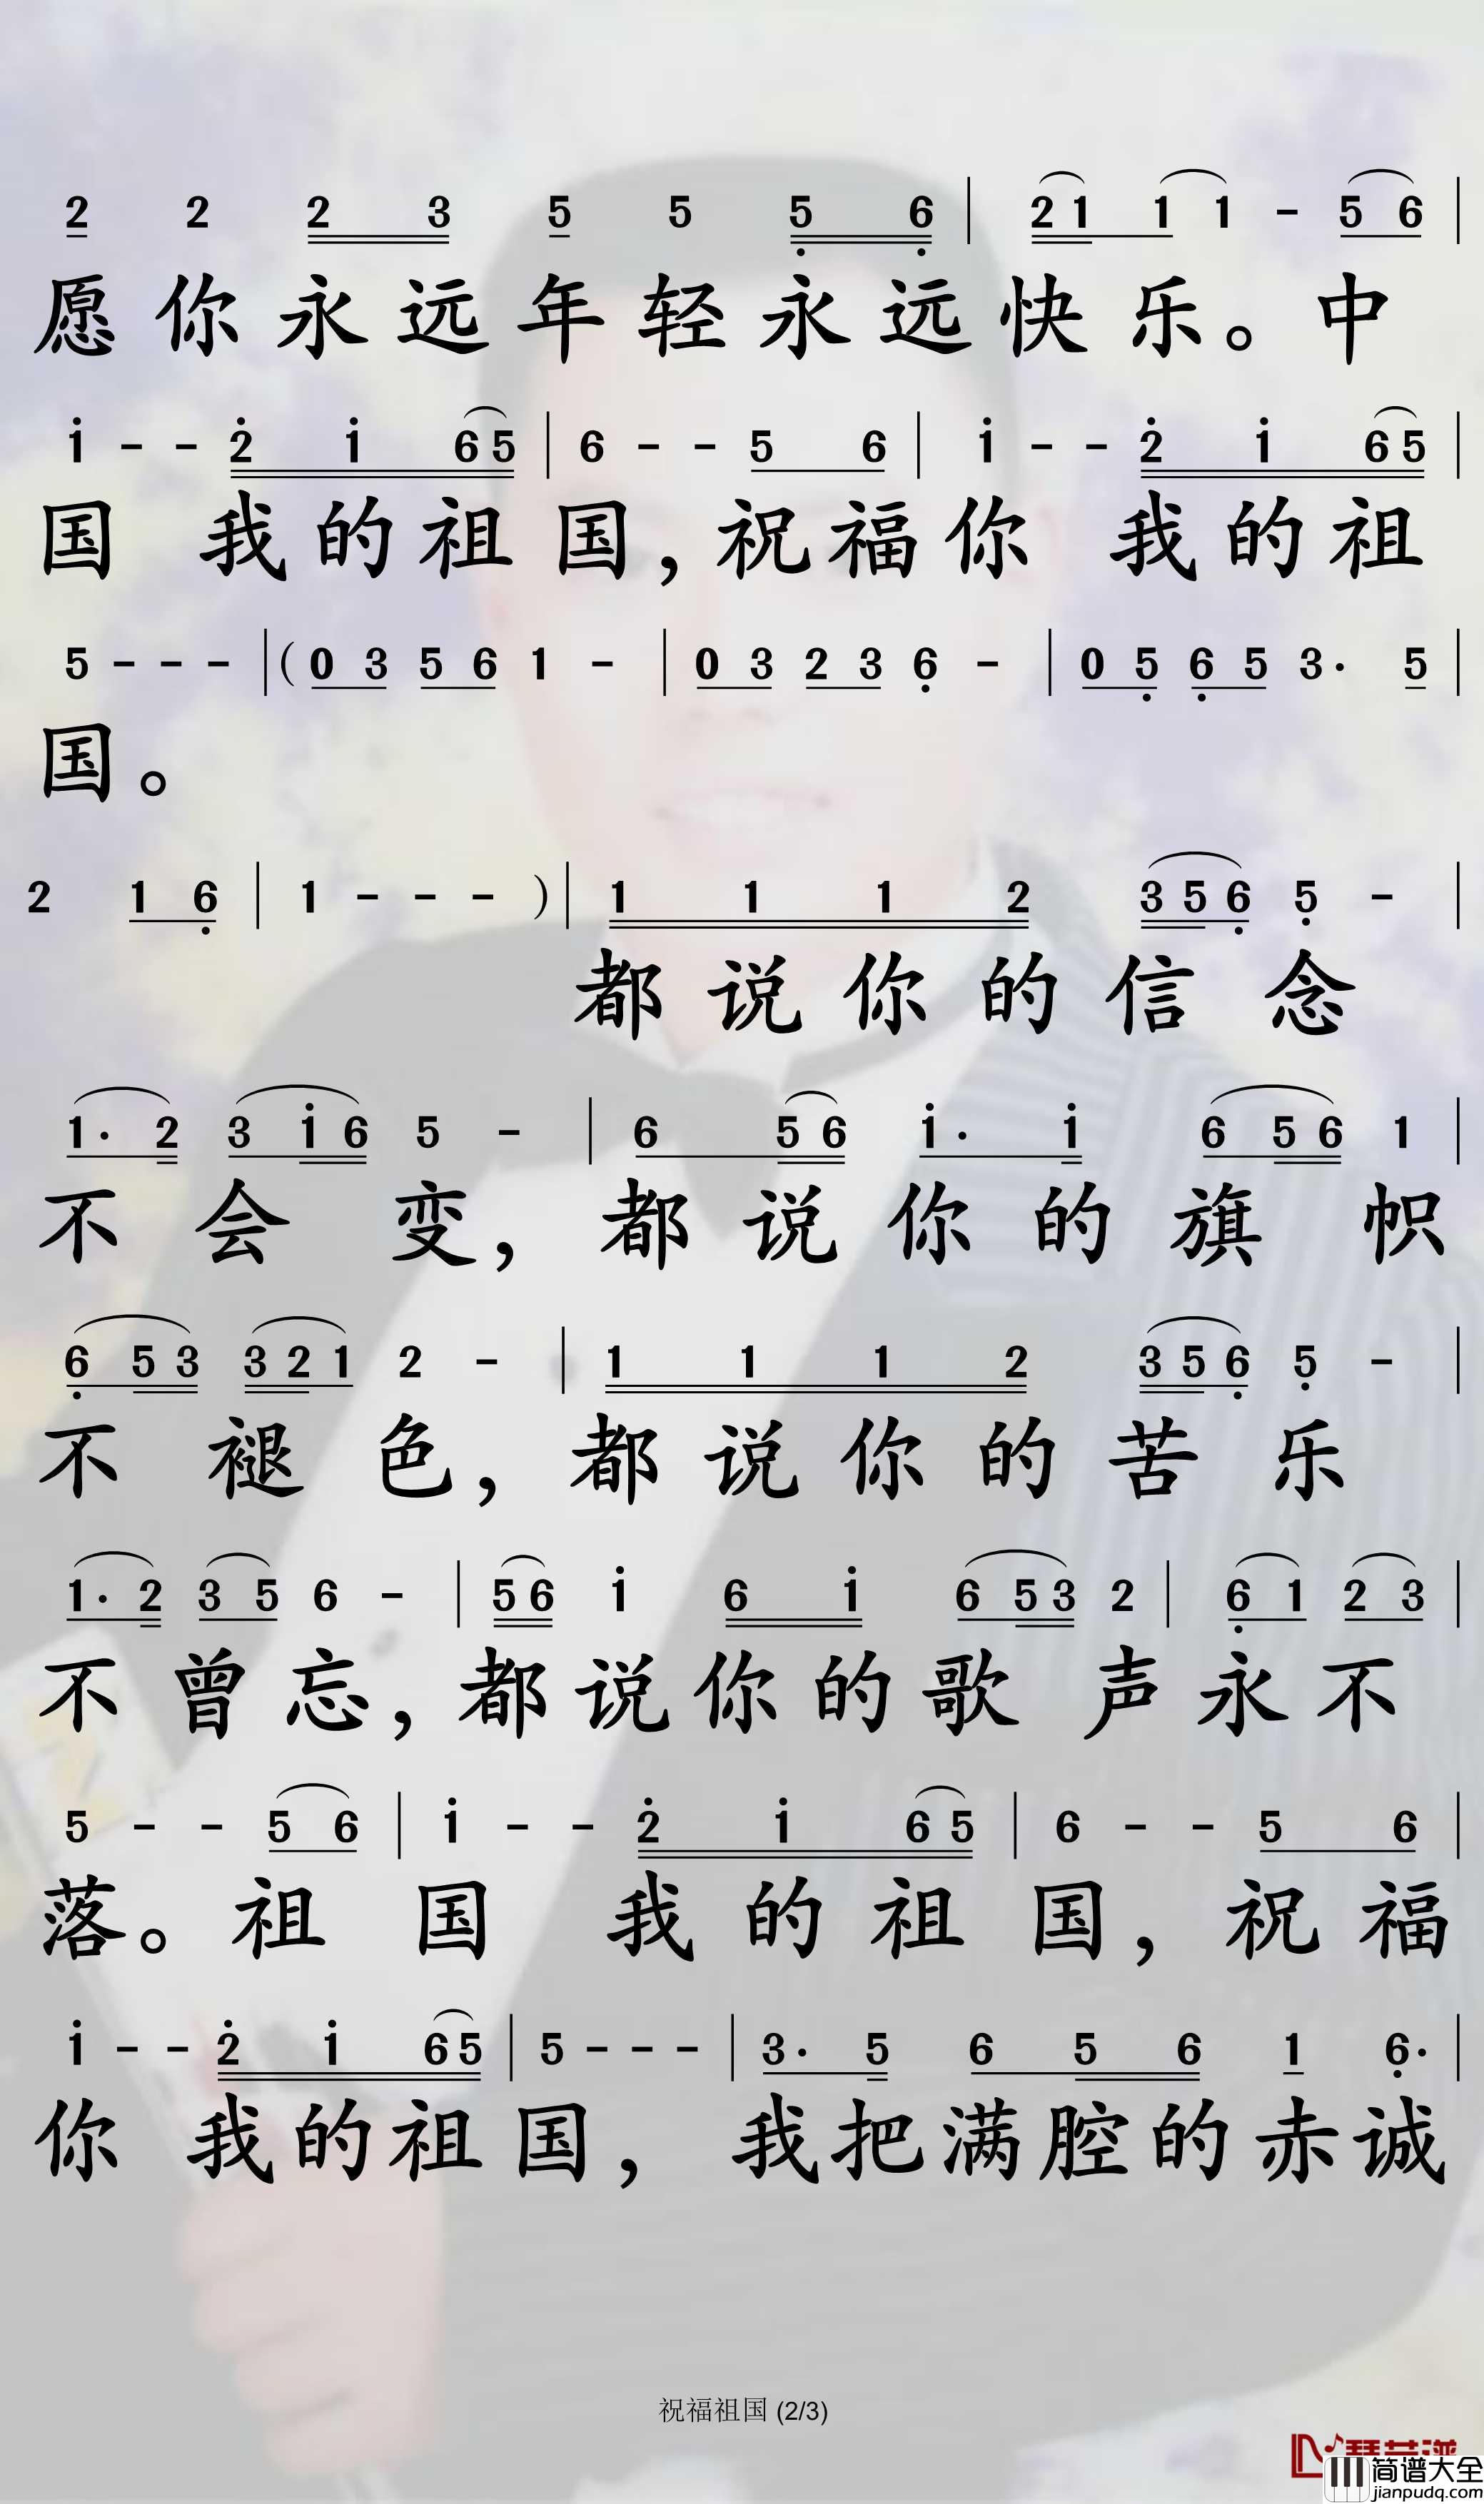 2 2 2 3 5 5 5 6 | 2 1 1 1 - 5 6 |
愿你永远年轻永远快乐。中
1 - - 2 1 6 5 | 6 - - 5 6 | 1 - - 2 1 6 5 |
国 我的祖国,祝福你 我的祖
5 - - - | ( 0 3 5 6 1 - | 0 3 2 3 6 - | 0 5 6 5 3· 5 |
国。
2 1 6 | 1 - - - ) | 1 1 1 2 3 5 6 5 - |
都说你的信念
1· 2 3 1 6 5 - | 6 5 6 1· 1 6 5 6 1 |
不会变,都说你的旗帜
6 5 3 3 2 1 2 - | 1 1 1 2 3 5 6 5 - |
不褪色,都说你的苦乐
1· 2 3 5 6 - | 5 6 1 6 1 6 5 3 2 | 6 1 2 3 |
不曾忘,都说你的歌声永不
5 - - 5 6 | 1 - - 2 1 6 5 | 6 - - 5 6 |
落。祖国 我的祖国,祝福
1 - - 2 1 6 5 | 5 - - - | 3· 5 6 5 6 1 6· |
你 我的祖国,我把满腔的赤诚
祝福祖国 (2/3)
简谱大全
jianpudq.com